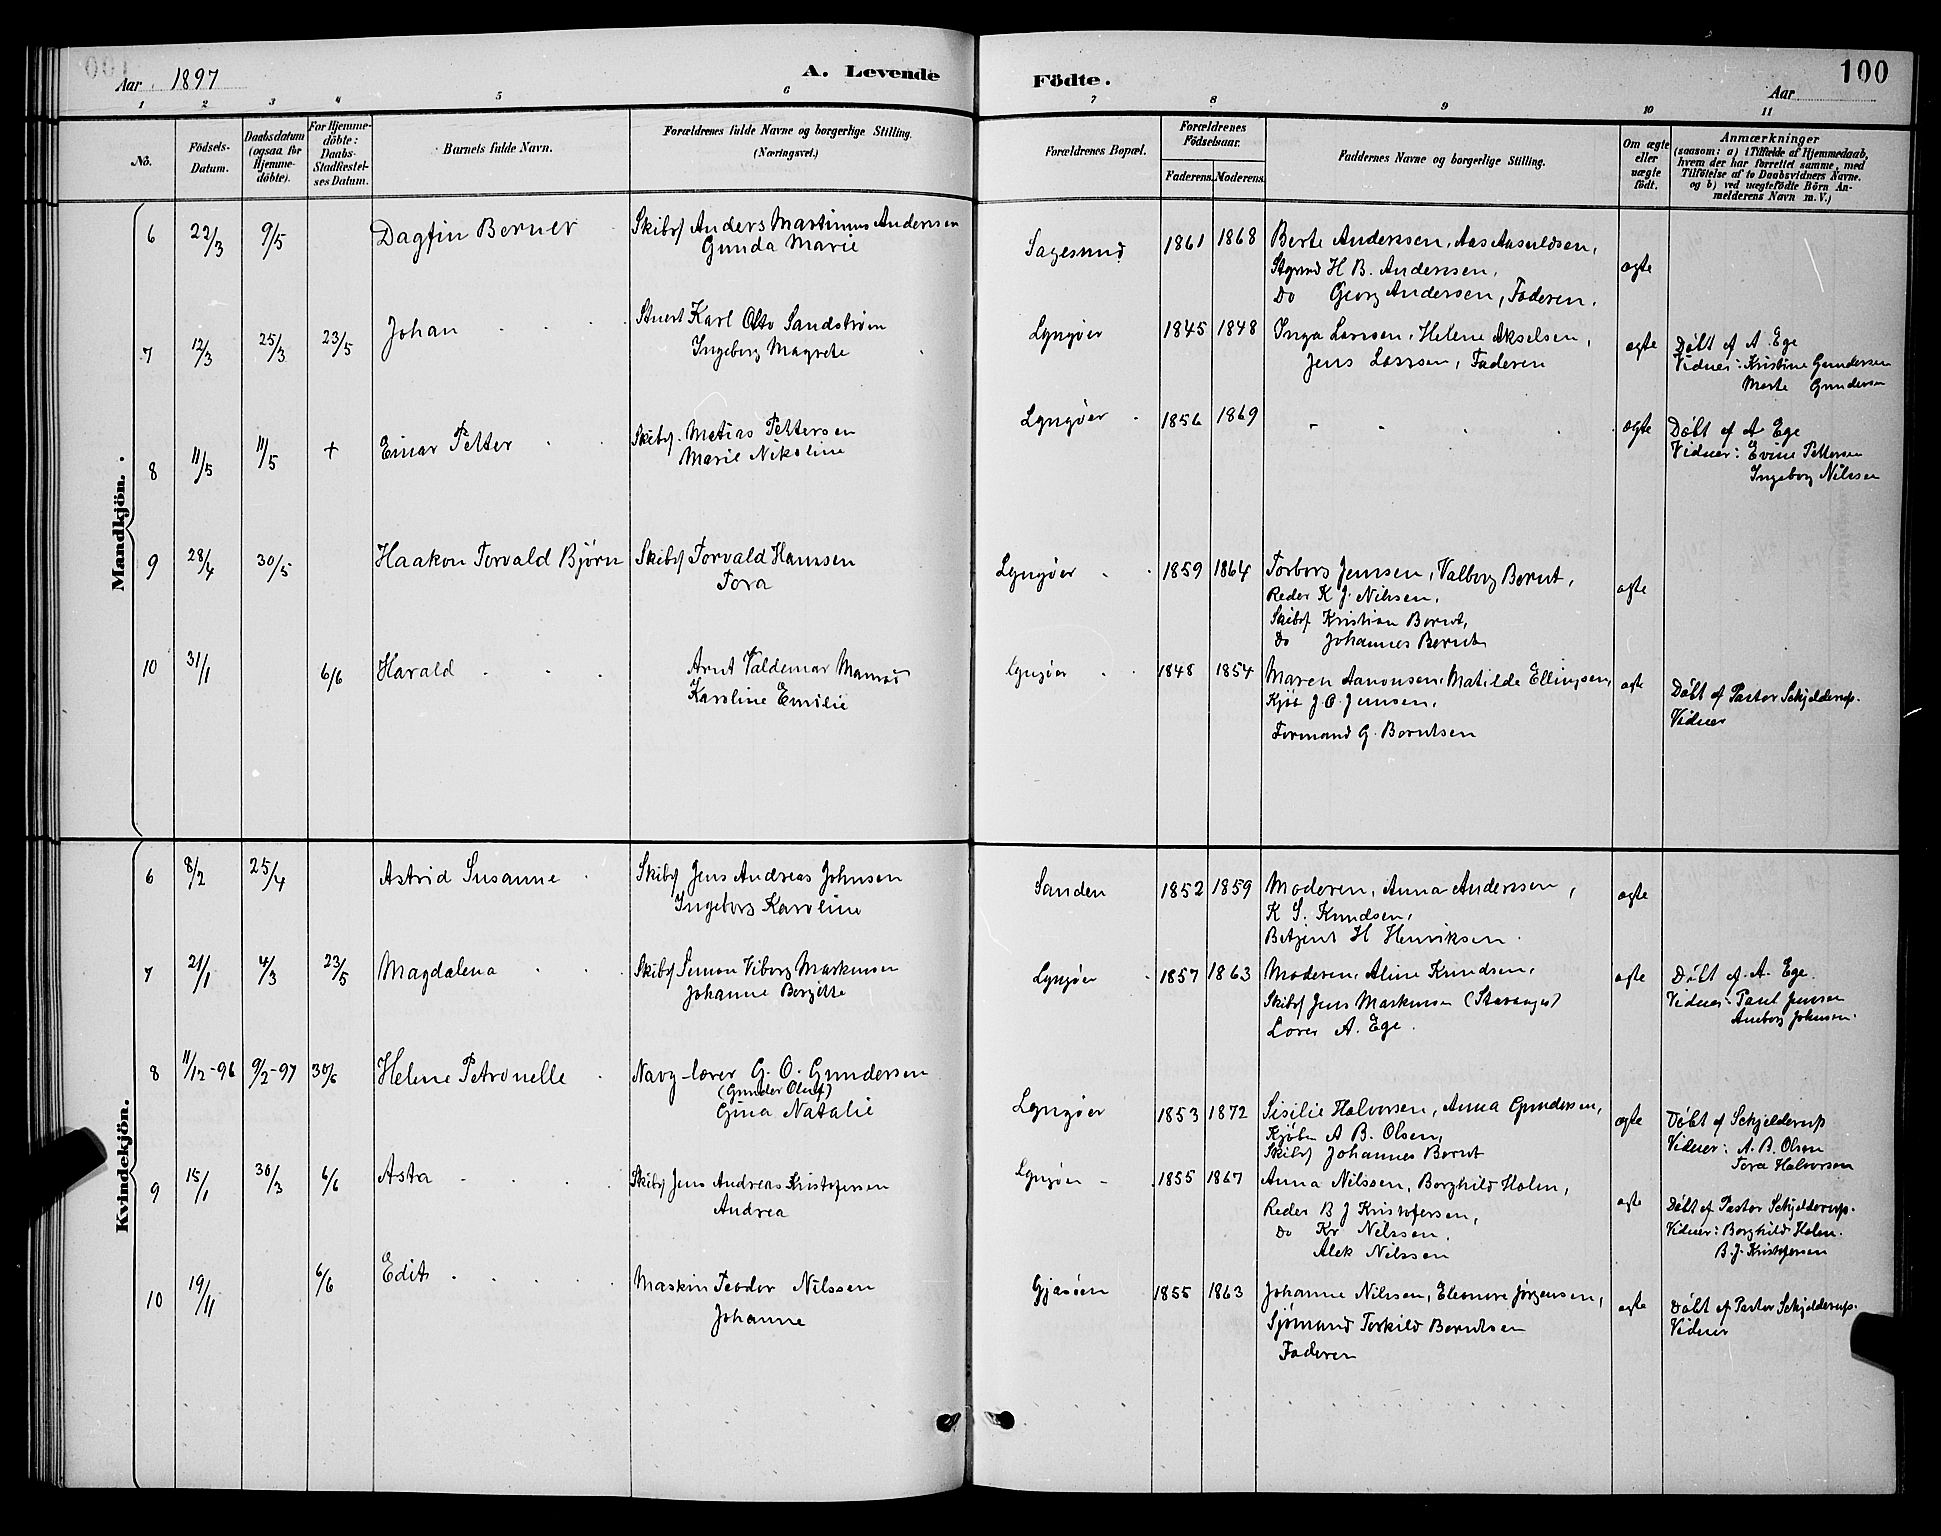 Aar 1897
A. Levende
Födte.
100
Aar
1 2 3 4 5 6 7 8 9 10 11
No.
Födsels-Datum.
Daabsdatum (ogsaa for Hjemme-döbte).
For Hjemme-döbte: Daabs-Stadfæstel-ses Datum.
Barnets fulde Navn.
Forældrenes fulde Navne og borgerlige Stilling. (Næringsvei.)
Forældrenes Bopæl.
Forældrenes Födselsaar.
Faderens. Moderens.
Faddernes Navne og borgerlige Stilling.
Om ægte eller uægte födt.
Anmærkninger
(saasom: a) i Tilfælde af Hjemmedaab,
hvem der har forrettet samme, med
Tilföielse af to Daabsvidners Navne.
og b) ved uægtefödte Börn An-
melderens Navn m. V.)
Mandkjön.
6 22/3 9/5 Dagfin Berner Skibsf Anders Martinius Anderssen Sagesund 1861 1868 Berte Anderssen, Aas Aasuldsen, ægte
Gunda Marie Styrmd H B. Anderssen,
Do Georg Andersen, Faderen.
7 12/3 25/3 23/5 Johan Stuert Karl Otto Sandstrøm Lyngøer 1845 1848 Inga Larssen, Helene Akselsen, ægte Döbt af A Ege
Ingeborg Magrete Jens Larssen, Faderen Vidner: Kristine Gundersen
Marte Gundersen
8 11/5 11/5 + Einar Petter Skibsf. Matias Pettersen Lyngøer 1856 1869 ægte Döbt af A Ege
Marie Nikoline Vidner: Evine Pettersen
Ingeborg Nilssen
9 28/4 30/5 Haakon Torvald Bjørn Skibsf Torvald Hansen Lyngøer 1859 1864 Torbors Jenssen, Valborg Bernt, ægte
Tora Reder K J. Nilssen,
Skibsf Kristian Bernt,
Do Johannes Bernt
10 31/1 6/6 Harald Arnt Valdemar Lyngøer 1848 1854 Maren Aanonsen, Matilde Ellingsen, ægte Döbt af Pastor Schjelderup.
Karoline Emilie Kjøb J. O. Jenssen, Vidner
Formand G. Berntsen
Kvindekjön.
6 8/2 25/4 Astrid Susanne Skibsf Jens Andreas Johnsen Sanden 1852 1859 Moderen, Anna Anderssen, ægte
Ingebors Karoline K S. Knudsen,
Betjent H Henriksen.
7 21/1 4/3 23/5 Magdalena Skibsf Simon Viborg Markussen Lyngøer 1857 1863 Moderen, Aline Knudsen, ægte Döbt af A. Ege.
Johanne Bergitte Skibsf Jens Markussen (Stavanger) Vidner: Paul Jensen
Lærer A. Ege. Aneborg Johnsen.
8 11/12-96 9/2-97 30/6 Helene Petronelle Navg-lærer G. O. Gundersen Lyngøer 1853 1872 Sisilie Halvorsen, Anna Gundersen, ægte Döbt af Schjelderup
(Gunder Oluf) Kjøbm A B. Olsen, Vidner: A. B. Olsen
Gina Natalie Skibsf Johannes Bernt Tora Halvorsen
9 15/1 30/3 6/6 Asta Skibsf Jens Andreas Kristofersen Lyngøer 1855 1867 Anna Nilssen, Borghild Holm, ægte Döbt af Pastor Schjelderup.
Andrea Reder B J Kristofersen, Vidner: Borghild Holm.
Do Kr Nilssen, B. J. Kristofersen
Alek Nilssen
10 19/11 6/6 Edit Maskin Teodor Nilssen Gjæsøen 1855 1863 Johanne Nilssen, Eleonore Jørgensen, ægte Döbt af Pastor Schjelderup.
Johanne Sjømand Terkild Berntsen Vidner
Faderen